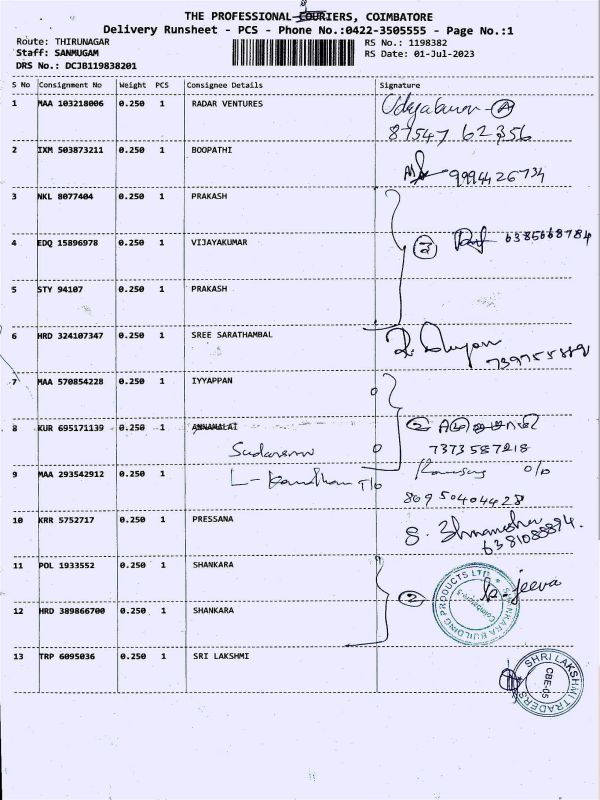 THE PROFESSIONAL COURIERS, COIMBATORE
Delivery Runsheet - PCS - Phone No.:0422-3505555 - Page No.:1
Route: THIRUNAGAR RS No.: 1198382
Staff: SANMUGAM RS Date: 01-Jul-2023
DRS No.: DCJB119838201
S No Consignment No Weight PCS Consignee Details Signature
1 MAA 103218006 0.250 1 RADAR VENTURES
87547 62356
2 IXM 503873211 0.250 1 BOOPATHI
9994426734
3 NKL 8077404 0.250 1 PRAKASH
4 EDQ 15896978 0.250 1 VIJAYAKUMAR
6385668784
5 STY 94107 0.250 1 PRAKASH
6 HRD 324107347 0.250 1 SREE SARATHAMBAL
7 MAA 570854228 0.250 1 IYYAPPAN
8 KUR 695171139 0.250 1 ANNAMALAI
7373587218
9 MAA 293542912 0.250 1
80950404428
10 KRR 5752717 0.250 1 PRESSANA
11 POL 1933552 0.250 1 SHANKARA
12 HRD 389866700 0.250 1 SHANKARA
② Jeeva
SHANKARA BUILDING PRODUCTS LTD.
Coimbatore-5
13 TRP 6095036 0.250 1 SRI LAKSHMI
SHRI LAKSHMI TRADERS
CBE-05